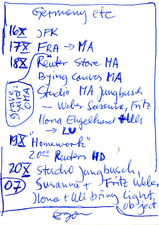 Germany etc
16X JFK
17X FRA → MA
18X Reuter Store MA
Bying Canvas MA
Studio MA Jungbusch
- Weber Susanna, Fritz
Ilona Engelhand + Ulli
→ LU
19X "Homework"
20:00 Reuters HD
20X Studio Jungbusch,
07) Susanna + Fritz Weber
Ilona + Ulli bring light
object